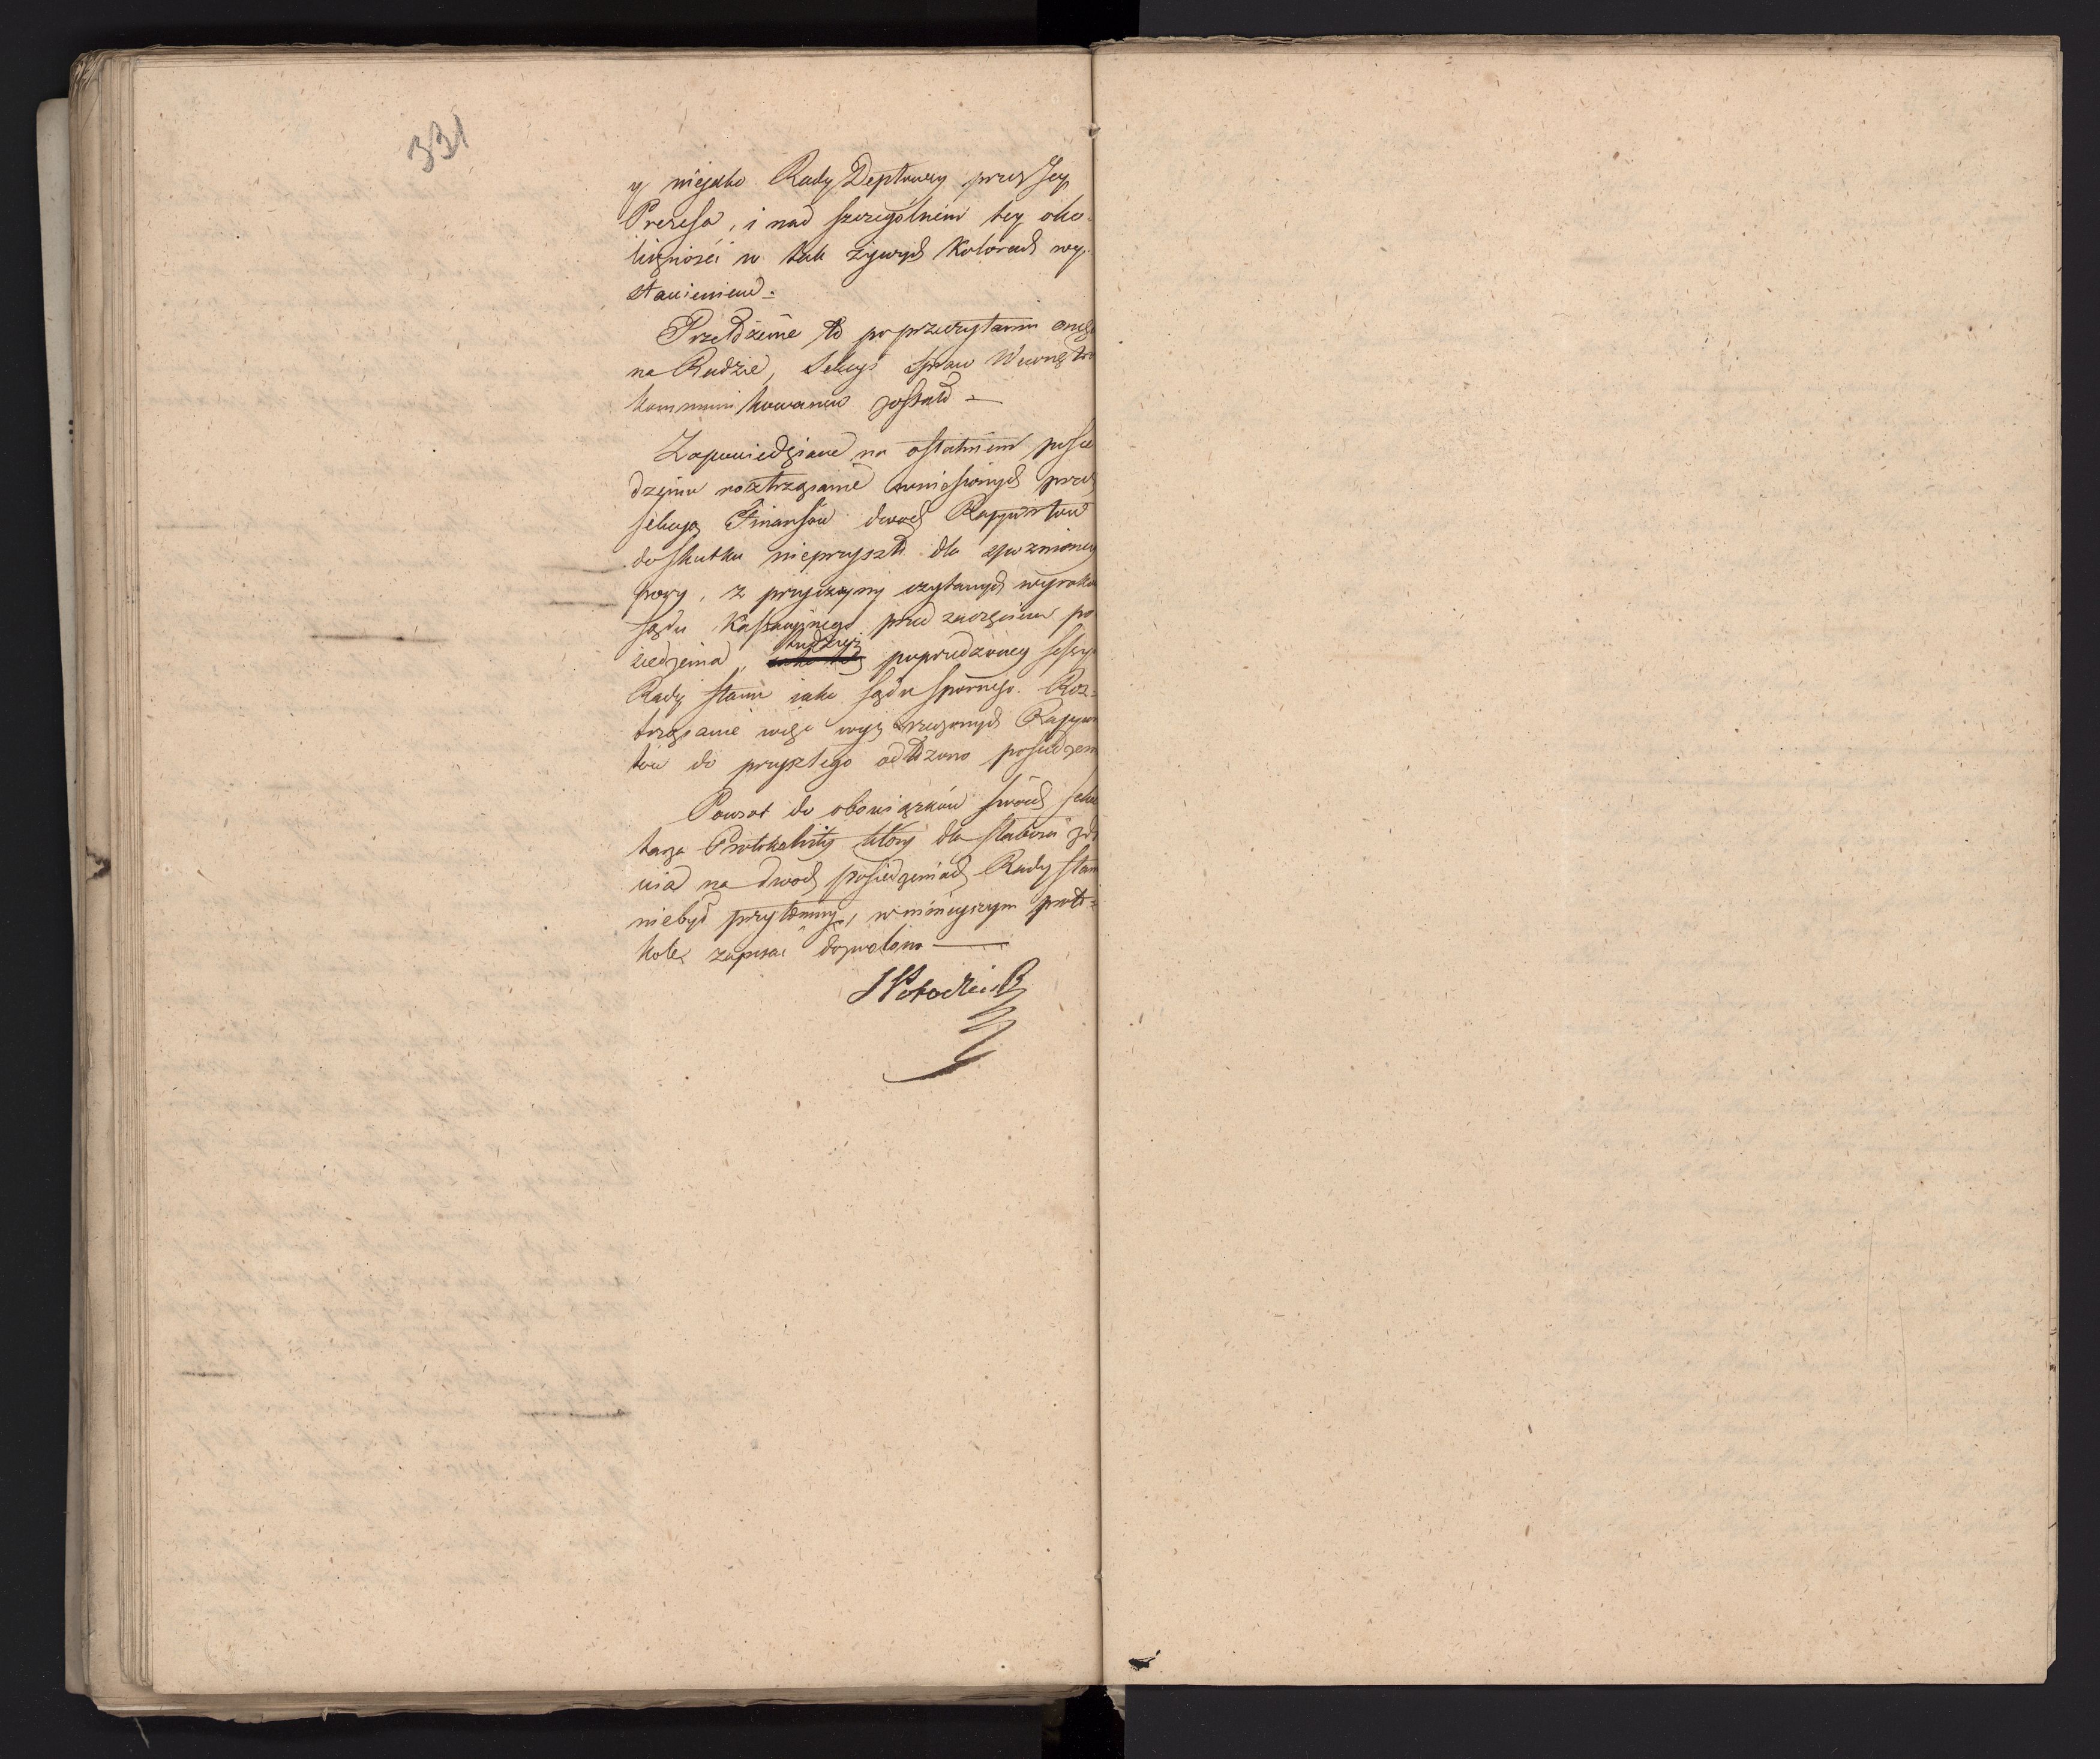 331
y niejako Rady Deptowey przez Jey
Prezesa, i nad szczególniem tey oko-
liczności w tak żywych kolorach wy-
stawieniem.
Przełożenie to po przeczytaniu onego
na Radzie, Sekcyi Spraw Wewnętrz
kommunikowanem zostało
Zapowiedziane na ostatniem posie
dzeniu roztrząsanie wniesionych przez
Sekcyą Finansów dwóch Rapportów
do skutku nieprzyszło dla spoznioney
pory, z przyczyny czytanych wyroków
Sądu Kassacyinego przed zaczęciem po
siedzenia, tudzież poprzedzoney Sessyi
Rady Stanu iako Sądu spornego. Roz-
trząsanie więc wyż rzeczonych Rappor
tów do przyszłego odłożono posiedzen
Powrot do obowiązków swoich Sekre
tarza Protokolisty który dla słabości zdr
wia na dwóch posiedzeniach Rady Stan
niebył przytomny, w ninieyszym proto-
kole zapisać dozwolono